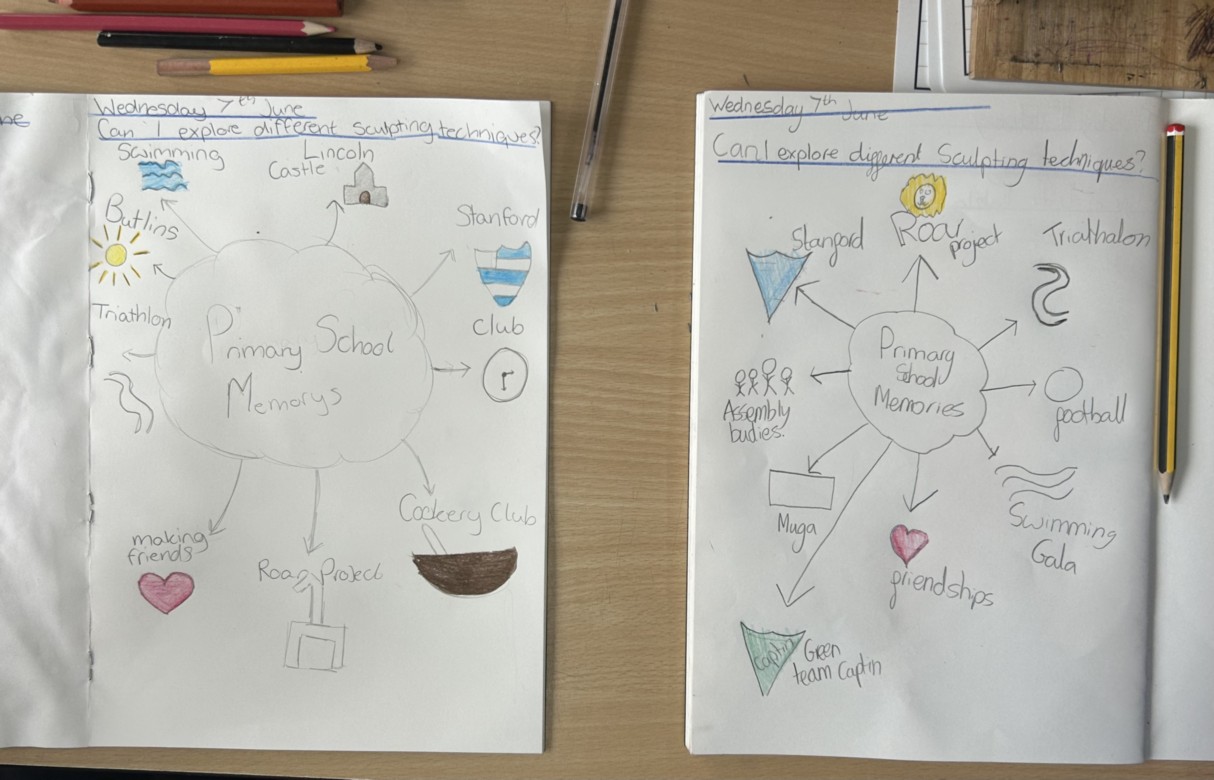 Wednesday 7th June
Can I explore different sculpting techniques?
Swimming
Lincoln
Castle
Butlins
Stanford
Triathlon
Club
r
Primary School
Memorys
Cockery Club
making
friends
Roar Project
Wednesday 7th June
Can I explore different Sculpting techniques?
Stanford
Roar
project
Triathalon
Primary
School
Memories
Assembly
budies.
football
Muga
Swimming
Gala
friendships
captin
Green
team Captin